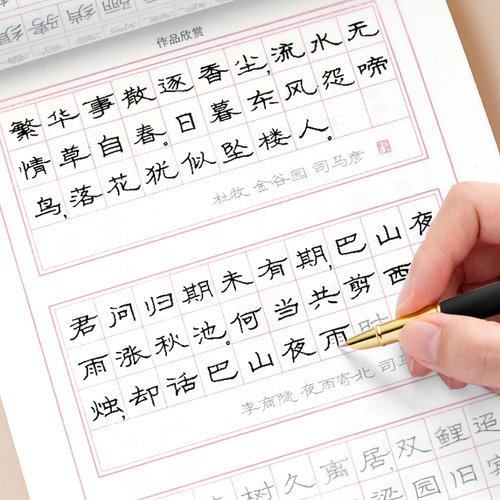 作品欣赏
繁华事散逐香尘,流水无
情草自春。日暮东风怨啼
鸟,落花犹似坠楼人。
杜牧 金谷园 司马彦
君问归期未有期,巴山夜
雨涨秋池。何当共剪西
烛,却话巴山夜雨时
李商隐 夜雨寄北 司马
树久离居,双鲤迢
园旧宾